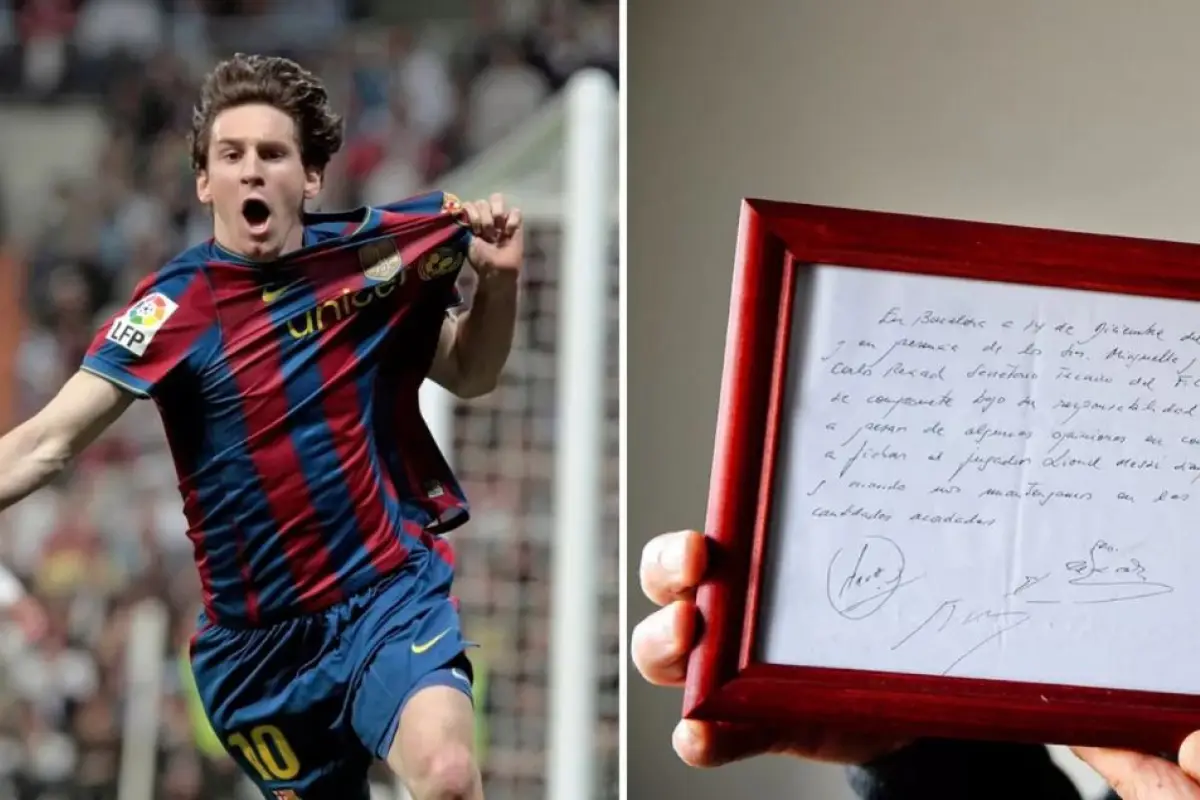 LFP
unicef
10
En Barcelona a 14 de Diciembre del
y en presencia de los Srs. Minguella y
Carlos Rexach Secretario Tecnico del F.C.
se compromete bajo su responsabilidad
a pesar de algunas opiniones en con
a fichar al jugador Lionel Messi siem
y cuando nos mantengamos en las
cantidades acordadas